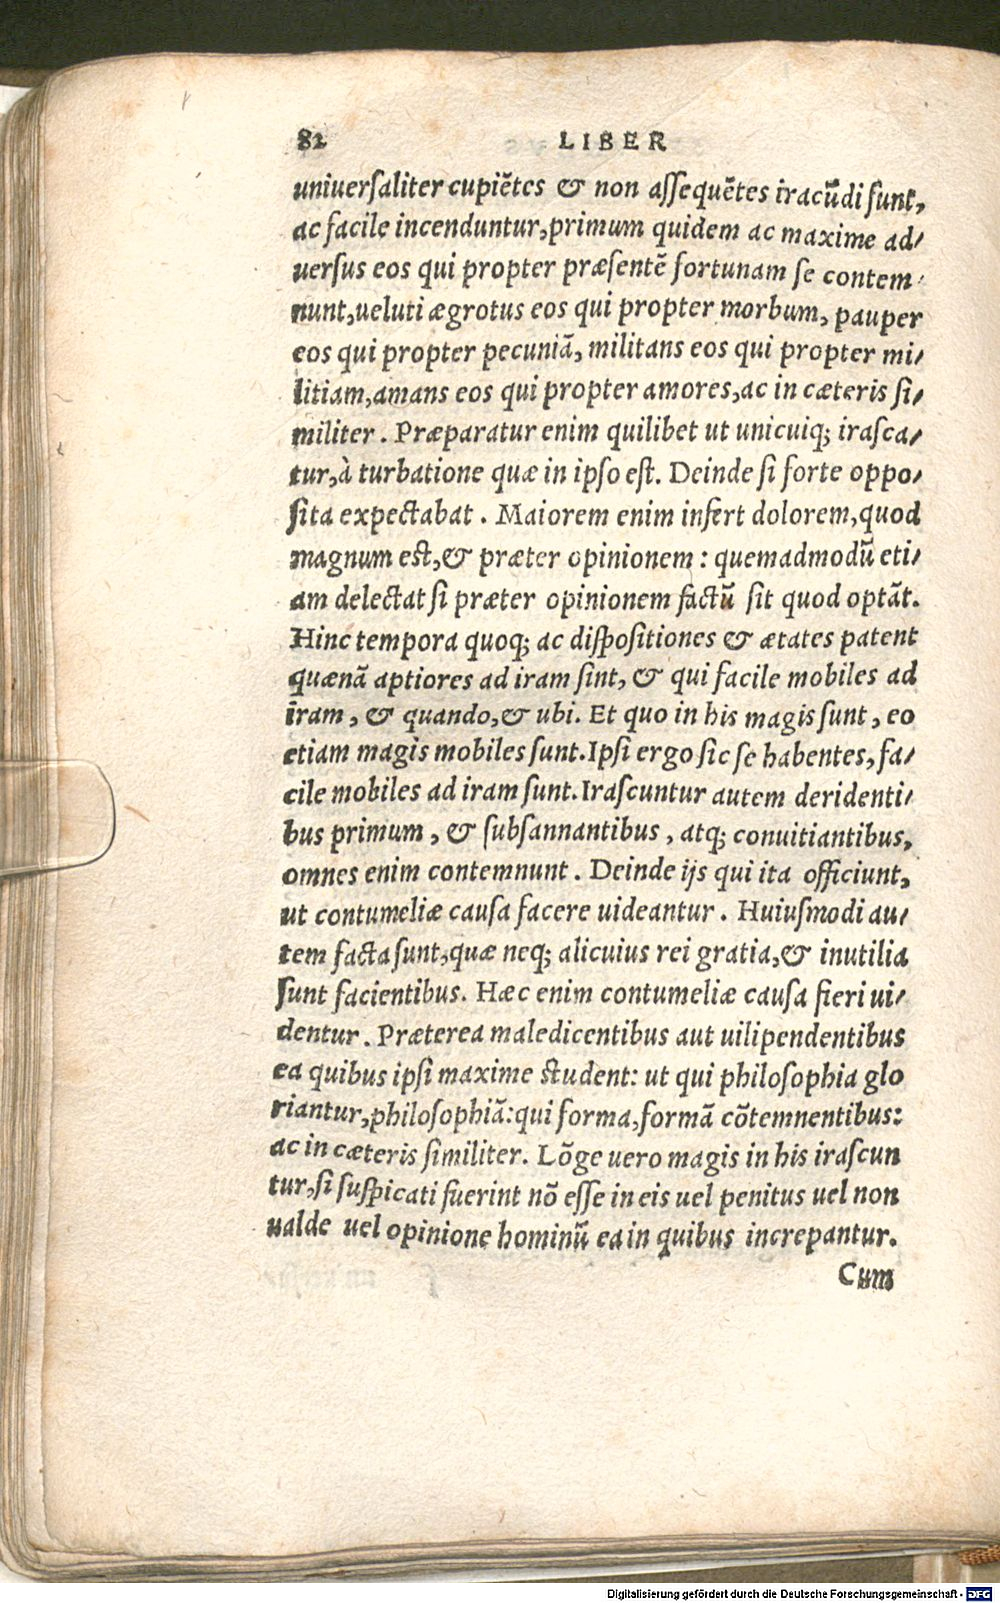 82 LIBER
uniuerſaliter cupiētes & non aſſequētes iracūdi ſunt,
ac facile incenduntur, primum quidem ac maxime ad/
uerſus eos qui propter præſentē fortunam ſe contem/
nunt, ueluti ægrotus eos qui propter morbum, pauper
eos qui propter pecuniā, militans eos qui propter mi/
litiam, amans eos qui propter amores, ac in cæteris ſi/
militer. Præparatur enim quilibet ut unicuiq; iraſca/
tur, à turbatione quæ in ipſo eſt. Deinde ſi forte oppo/
ſita expectabat. Maiorem enim infert dolorem, quod
magnum eſt, & præter opinionem: quemadmodū eti/
am delectat ſi præter opinionem factū ſit quod optāt.
Hinc tempora quoq; ac diſpoſitiones & ætates patent
quænā aptiores ad iram ſint, & qui facile mobiles ad
iram, & quando, & ubi. Et quo in his magis ſunt, eo
etiam magis mobiles ſunt. Ipſi ergo ſic ſe habentes, fa/
cile mobiles ad iram ſunt. Iraſcuntur autem deridenti/
bus primum, & ſubſannantibus, atq; conuitiantibus,
omnes enim contemnunt. Deinde ijs qui ita officiunt,
ut contumeliæ cauſa facere uideantur. Huiuſmodi au/
tem facta ſunt, quæ neq; alicuius rei gratia, & inutilia
ſunt facientibus. Hæc enim contumeliæ cauſa fieri ui/
dentur. Præterea maledicentibus aut uilipendentibus
ea quibus ipſi maxime ſtudent: ut qui philoſophia glo
riantur, philoſophiā: qui forma, formā cōtemnentibus:
ac in cæteris ſimiliter. Lōge uero magis in his iraſcun
tur, ſi ſuſpicati fuerint nō eſſe in eis uel penitus uel non
ualde uel opinione hominū ea in quibus increpantur.
Cum
Digitalisierung gefördert durch die Deutsche Forschungsgemeinschaft - DFG